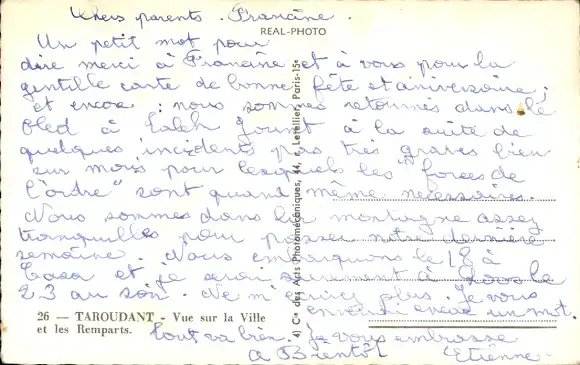 Chers parents. Francine.
REAL-PHOTO
Un petit mot pour
dire merci à Francine et à vous pour la
gentille carte de bonne fête et aniversaire;
et encore: nous sommes retournés dans le
bled à à la suite de
quelques incidents pas très graves bien
sur mais pour lesquels les "forces de
l'ordre" sont quand même nécessaires.
Nous sommes dans la montagne assez
tranquilles pour passer notre dernière
semaine. Nous embarquons le 18 à
Casa et je serai surement à le
23 au soir. Ne m'écrivez plus. Je vous
enverrai encore un mot.
26 — TAROUDANT - Vue sur la Ville
et les Remparts.
tout va bien. Je vous embrasse
A Bientôt Etienne
4) Cie des Arts Photomécaniques, 44, r. Letellier, Paris-15e